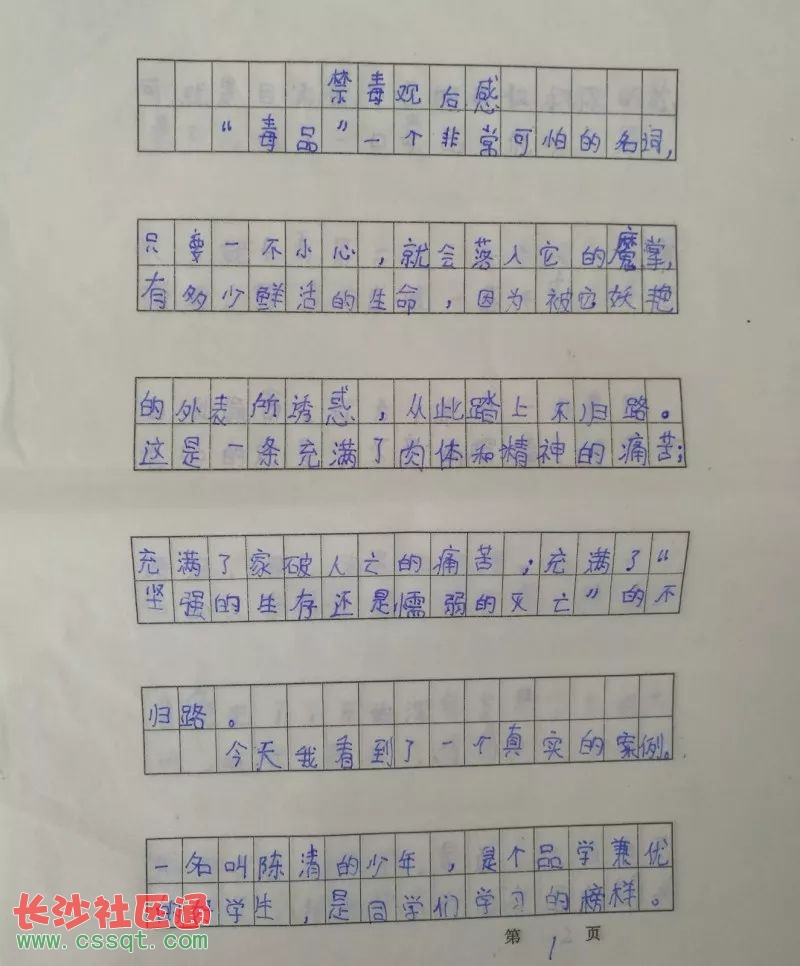 禁毒观后感
“毒品”一个非常可怕的名词，
只要一不小心，就会落入它的魔掌，
有多少鲜活的生命，因为被它妖艳
的外表所诱惑，从此踏上不归路。
这是一条充满了肉体和精神的痛苦；
充满了家破人亡的痛苦；充满了“
坚强的生存还是懦弱的灭亡”的不
归路。
今天我看到了一个真实的案例。
一名叫陈清的少年，是个品学兼优
学生，是同学们学习的榜样。
长沙社区通
www.cssqt.com
第 1 页